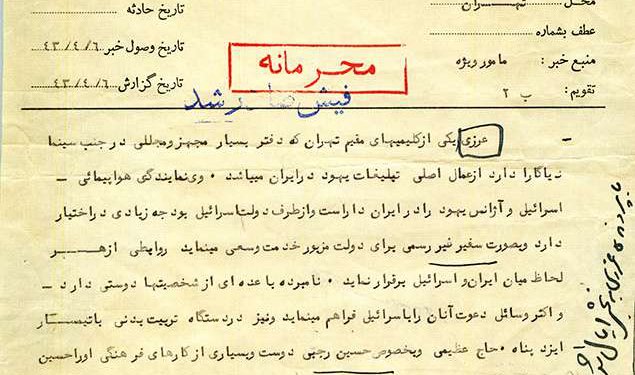 محل ........ تهــــران
عطف بشماره
منبع خبر : مامور ویژه
تقویم : ب ۲
تاریخ حادثه
تاریخ وصول خبر ۴۳/۴/۶
تاریخ گزارش ۴۳/۴/۶
محرمانه
فیش صادر شد
- عزری یکی از کلیمیهای مقیم تهران که دفتر بسیار مجهز ومجللی در جنب سینما
دیاگارا دارد از عمال اصلی تبلیغات یهود در ایران میباشد . وی نمایندگی هواپیمائی -
اسرائیل و آژانس یهود را در ایران دارا ست و از طرف دولت اسرائیل بودجه زیادی در اختیار
دارد وبصورت سفیر غیر رسمی برای دولت مزبور خدمت وسعی مینماید روابطی از هــــر
لحاظ میان ایران و اسرائیل برقرار نماید . نامبرده با عده ای از شخصیتها دوستی دارد -
و اکثر وسائل دعوت آنان را باسرائیل فراهم مینماید ونیز در دستگاه تربیت بدنی باتیمسـار
ایزد پناه . حاج عظیمی وبخصوص حسین رجبی دوست وبسیاری از کارهای فرهنگی اورا حسین